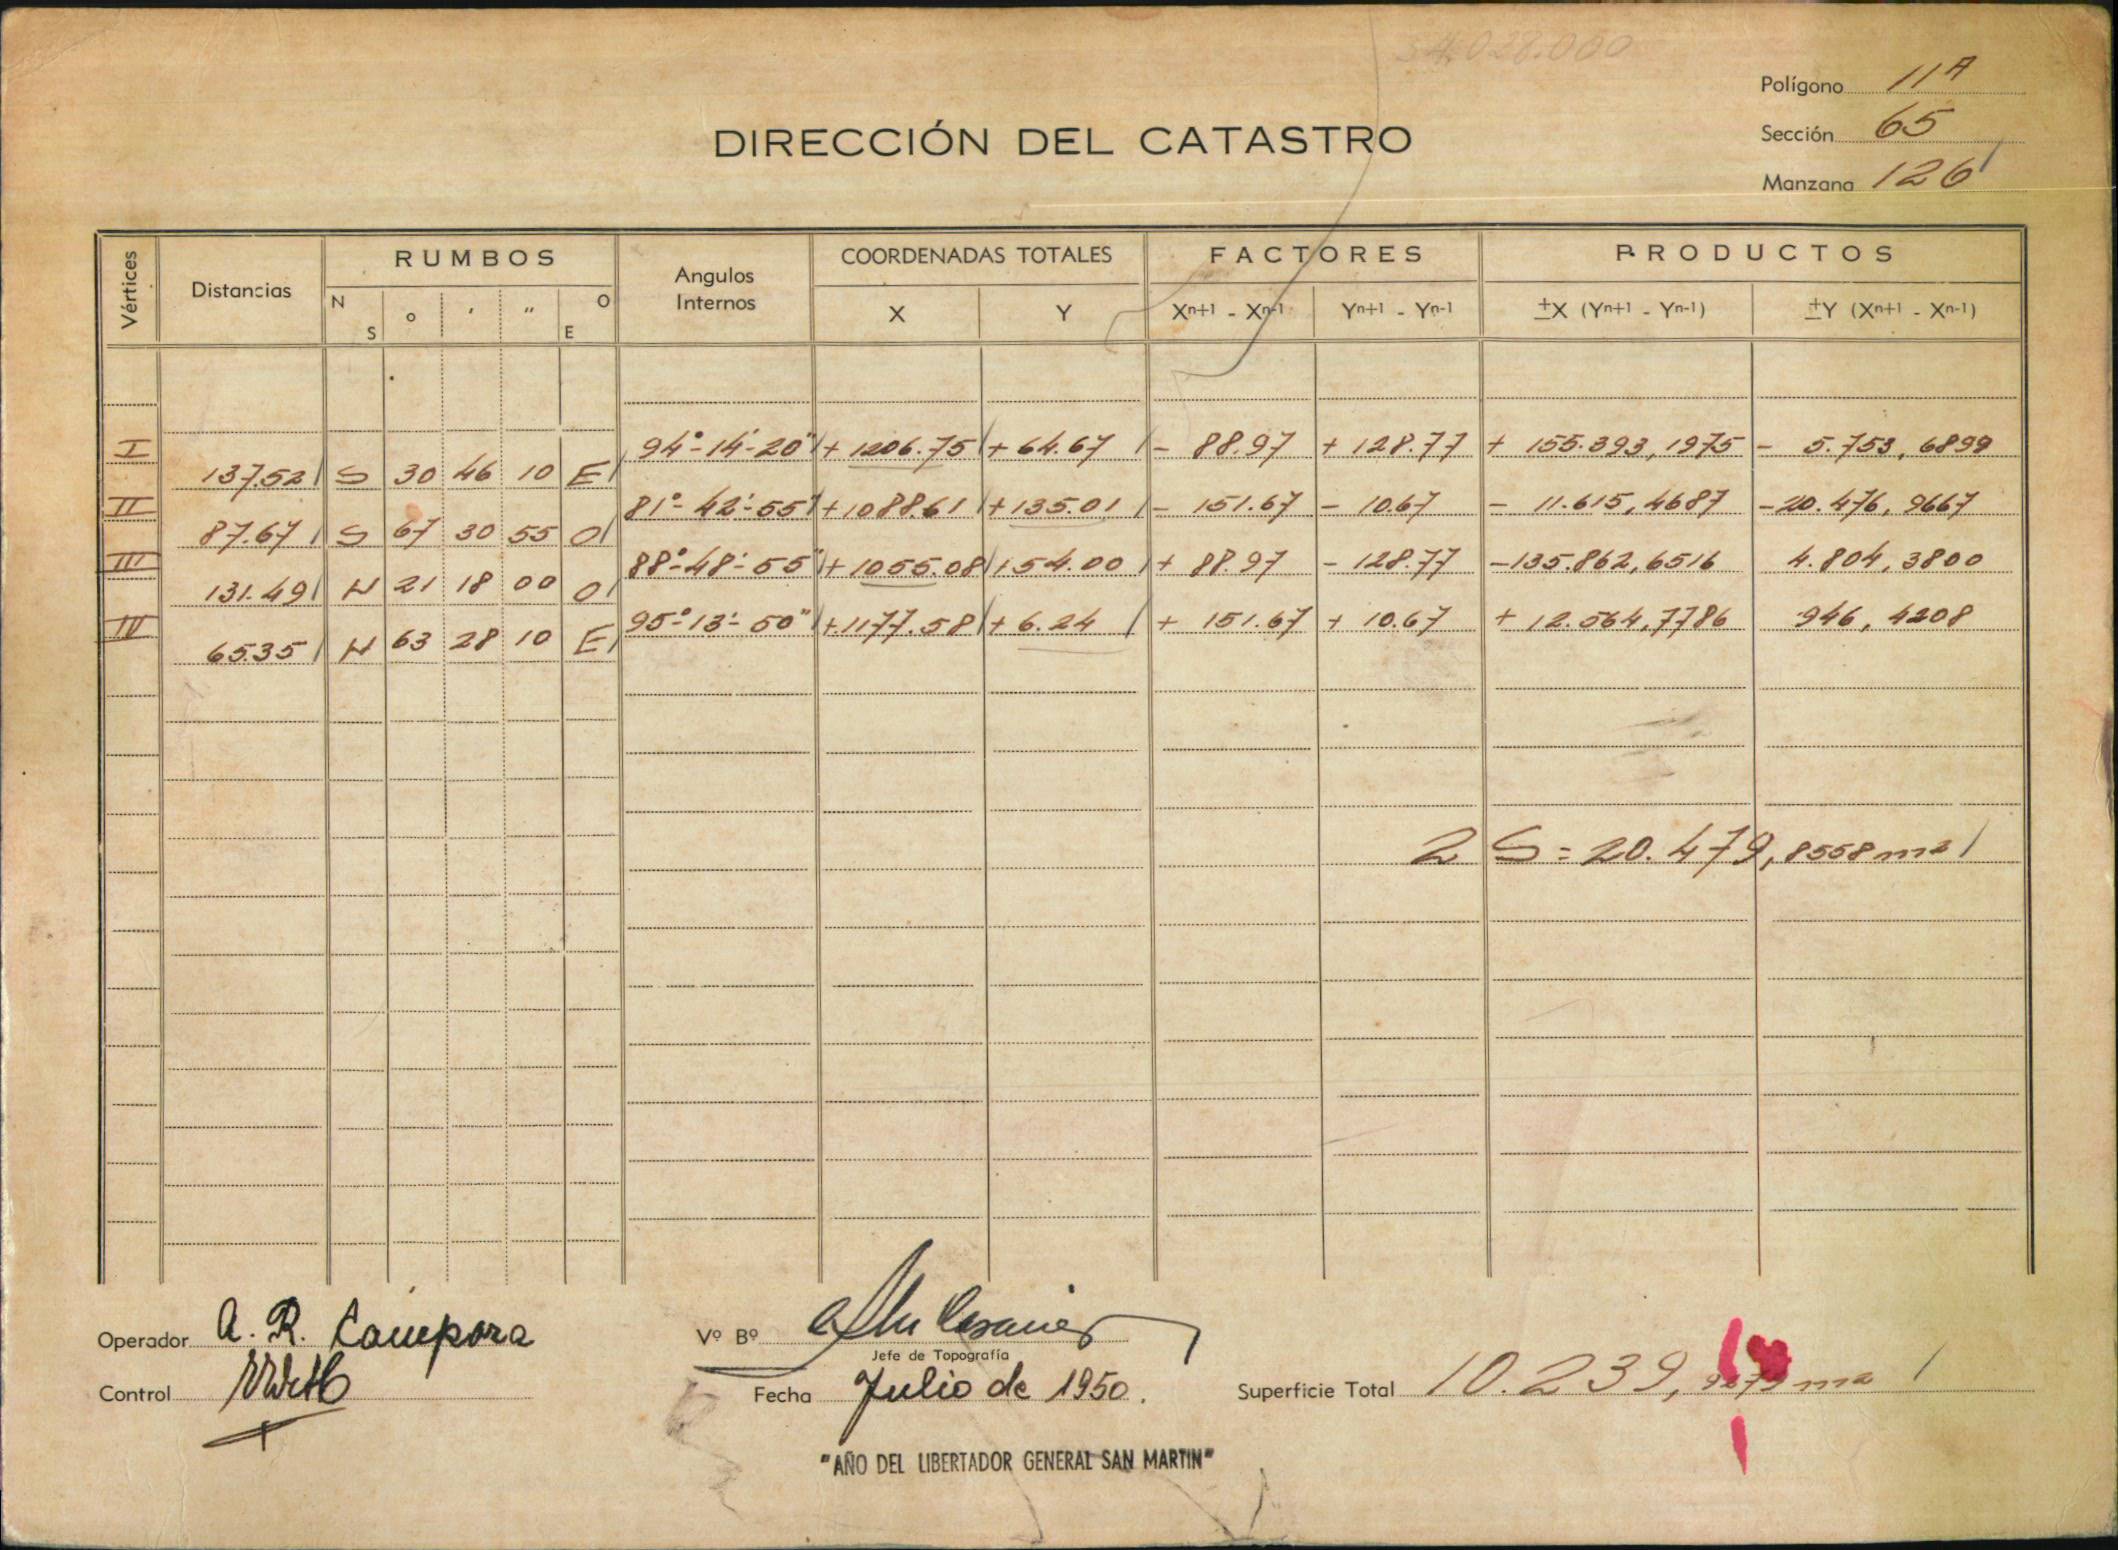 54.028.000
Polígono 11A
DIRECCIÓN DEL CATASTRO
Sección 65
Manzana 126
Vértices Distancias RUMBOS Angulos Internos COORDENADAS TOTALES FACTORES PRODUCTOS
N S o ' " O E X Y Xn+1 - Xn-1 Yn+1 - Yn-1 ±X (Yn+1 - Yn-1) ±Y (Xn+1 - Xn-1)
I 94°-14'-20" + 1206.75 + 64.67 - 88.97 + 128.77 + 155.393,1975 - 5.753,6899
137.52 S 30 46 10 E
II 81°-42'-55" +1088.61 +135.01 - 151.67 - 10.67 - 11.615,4687 -20.476,9667
87.67 S 67 30 55 O
III 88°-48'-55" + 1055.08 154.00 + 88.97 - 128.77 -135.862,6516 4.804,3800
131.49 N 21 18 00 O
IV 95°-13'-50" +1177.58 + 6.24 + 151.67 + 10.67 + 12.564,7786 946,4208
65.35 N 63 28 10 E
2 S = 20.479,8558 m2
Operador A. R. Cámpora
Vº Bº
Jefe de Topografía
Control
Fecha Julio de 1950.
Superficie Total 10.239, m2
"AÑO DEL LIBERTADOR GENERAL SAN MARTIN"